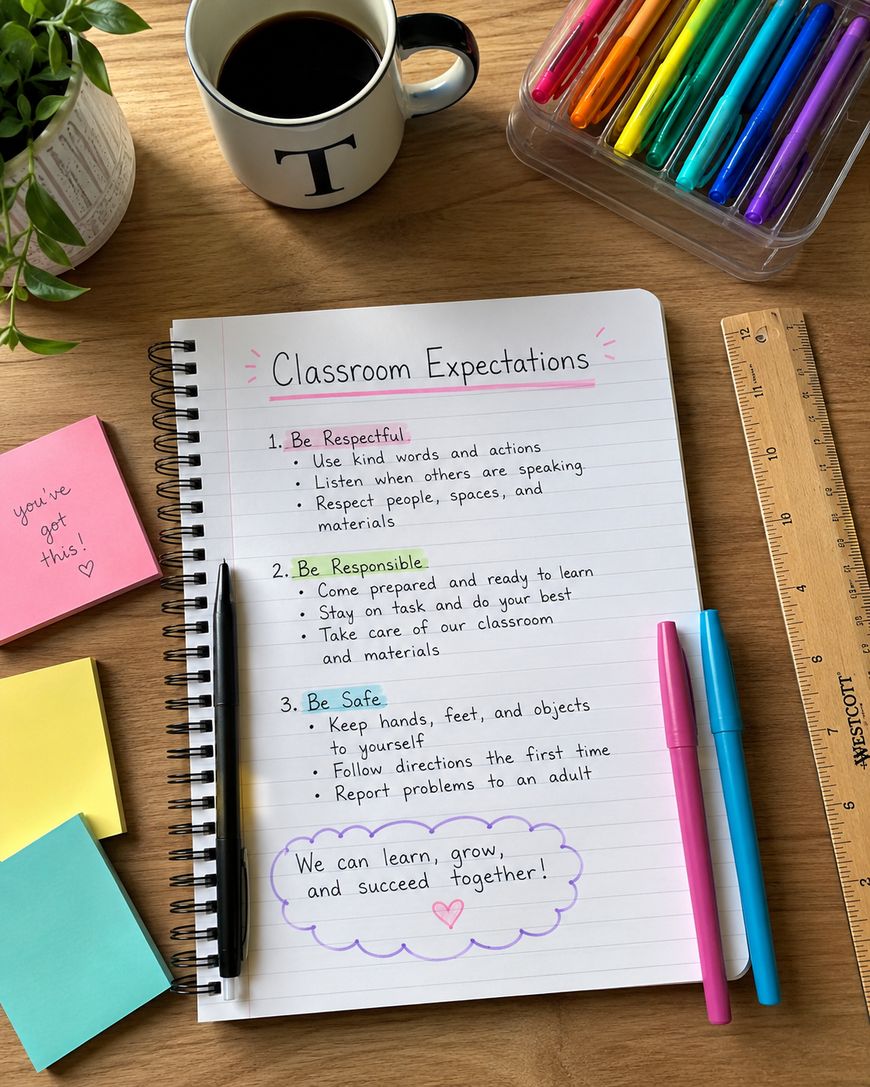 T
Classroom Expectations
1. Be Respectful
• Use kind words and actions
• Listen when others are speaking
• Respect people, spaces, and
materials
2. Be Responsible
• Come prepared and ready to learn
• Stay on task and do your best
• Take care of our classroom
and materials
3. Be Safe
• Keep hands, feet, and objects
to yourself
• Follow directions the first time
• Report problems to an adult
We can learn, grow,
and succeed together!
you've
got
this!
12
11
10
10
4
7
2
WESTCOTT